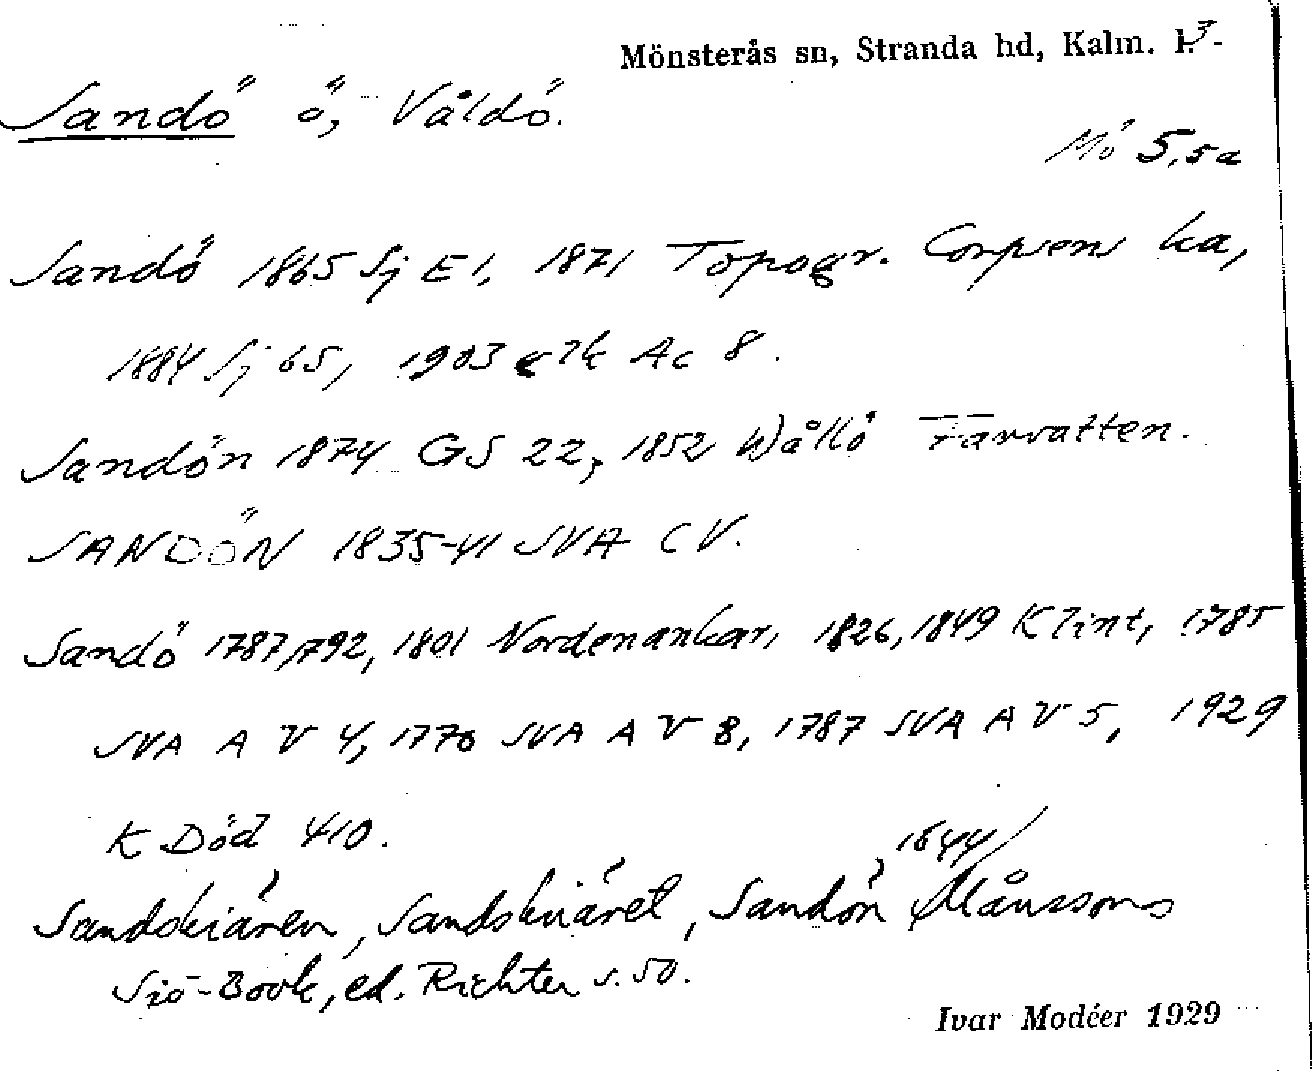 Mönsterås sn, Stranda hd, Kalm. l.
Sandö ö, Våldö.
Mö 5,5a
Sandö 1865 Sj E 1, 1871 Topogr. Corpsens ka,
1884 Sj 65, 1903 gsk Ac 8.
Sandön 1874 GS 22, 1852 Wållö Farvatten.
SANDÖN 1835-41 SVA C V.
Sandö 1787, 1792, 1801 Nordenankar, 1826, 1849 Klint, 1785
SVA A V 4, 1770 SVA A V 8, 1787 SVA A V 5, 1929
K Död 410.
Sandskiären, Sandskiäret, Sandön, 1644 / Månssons
Siö-Book, ed. Richter s. 50.
Ivar Modéer 1929